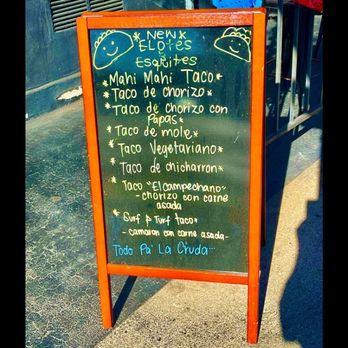 *NEW*
ELOTES
y
Esquites
*Mahi Mahi Taco*
*Taco de chorizo*
*Taco de chorizo con
Papas*
*Taco de mole*
*Taco Vegetariano*
*Taco de chicharron*
*Taco "El campechano"
-chorizo con carne
asada
*Surf & Turf taco*
-camaron con carne asada-
Todo Pa' La Cruda...